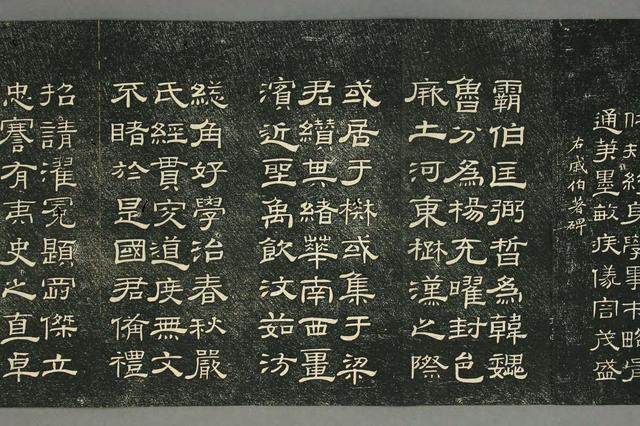 通英墨敏疾儀容茂盛
右戚伯著碑
霸伯匡弼哲為韓魏
魯分為楊充曜封邑
厥土河東楙漢之際
或居于楙或集于梁
君纘其緒華南西畺
濱近聖禹飲汶茹汸
総角好學治春秋嚴
氏經貫究道度無文
不睹於是國君備禮
招請濯冕題剛傑立
忠謇有夷史之直卓